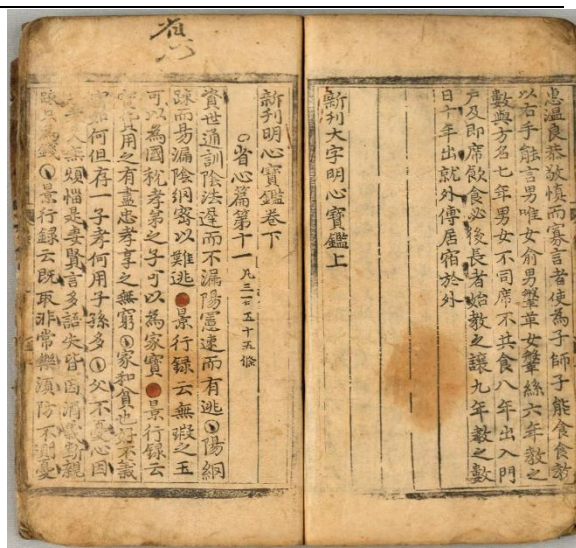 惠溫良恭敬慎而寡言者使為子師子能食食敎
以右手能言男唯女俞男鞶革女鞶絲六年敎之
數與方名七年男女不同席不共食八年出入門
戶及即席飲食必後長者始敎之讓九年敎之數
日十年出就外傅居宿於外
新刊大字明心寶鑑上
省心
新刊明心寶鑑卷下
○省心篇第十一 凡五十五條
資世通訓陰法遲而不漏陽憲速而有逃陽網
踈而易漏陰網密以難逃景行録云無瑕之玉
可以為國稅孝弟之子可以為家寶景行録云
寶貨用之有盡忠孝享之無窮家和貧也好不義
富如何但存一子孝何用子孫多父不憂心因
子孝夫無煩惱是妻賢言多語失皆因酒義斷親
踈只為錢景行録云既取非常樂須防不測憂